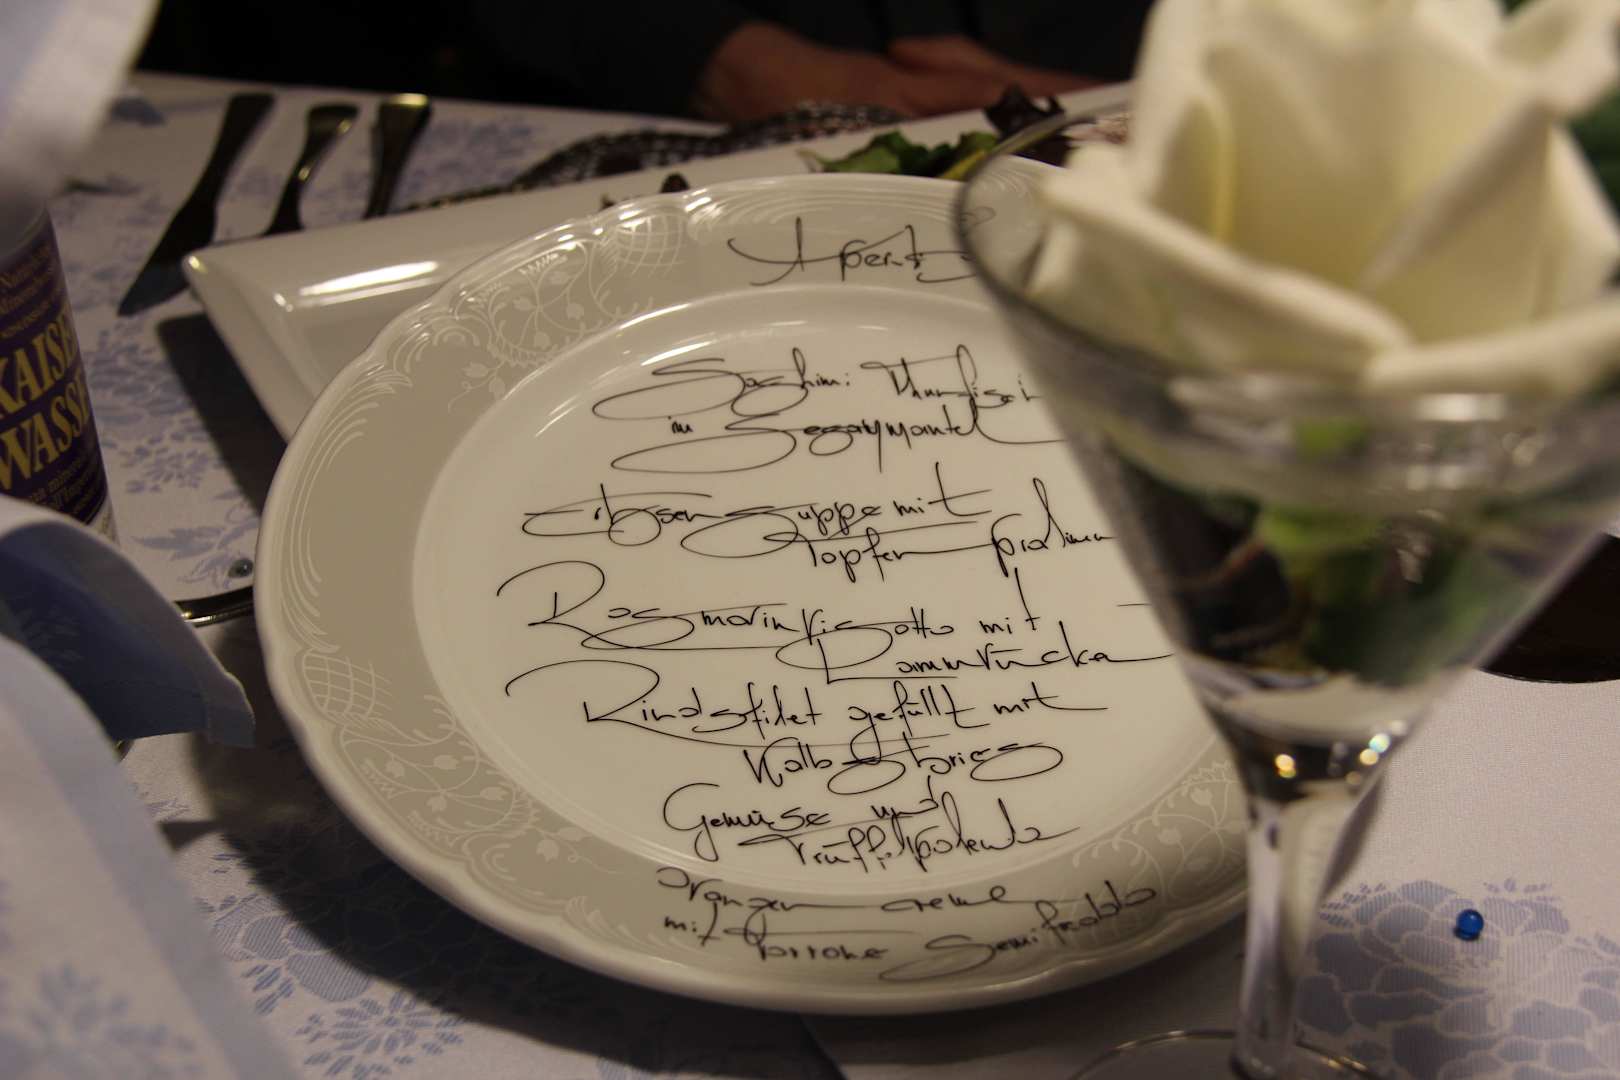 KAISER
WASSER
Sashimi Thunfisch
in Sesammantel
Erbsensuppe mit
Topfen pralinen
Rosmarinrisotto mit
Lammrücken
Rindsfilet gefüllt mit
Kalbsbries
Gemüse und
Trüffelpolenta
orangen creme
mit Torrone Semifreddo